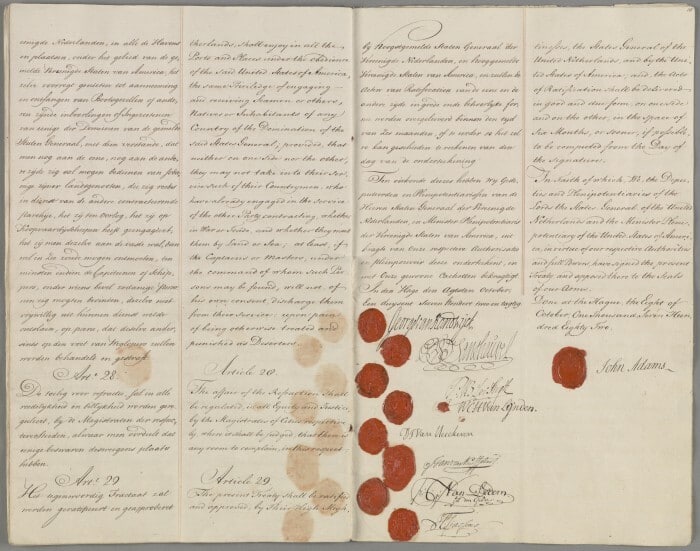 eenigde Nederlanden, in alle de Havens
en plaatsen, onder het geleid van de ge-
melde Vereenigde Staten van America, het
zelve voorregt genieten tot aanneeming
en ontfangen van Bootsgezellen of ande-
ren zijnde inboorlingen of Ingezetenen
van eenige der Domeinen van de gemelde
Staten Generaal, mits dien verstande, dat
men nog aan de eene, nog aan de ande-
re zijde zig zal mogen bedienen van
zijner landgenooten, die zig reeds
in dienst van de andere contracteerende
het zij ten oorlog, het zij op
Koopvaardijscheepen heeft geengageerd,
het zij men dezelve aan de vaste wal, dan
wel in Zee zoude mogen ontmoeten, ten
minsten indien de Capiteinen of Schip-
pers, onder wiens bevel zodanige persoo-
nen zig mogten bevinden, dezelve niet
vrijwillig uit hunnen dienst wilde
ontslaan, op pæne, dat dezelve ander-
zints op den voet van Weglopers zullen
worden behandelt en gestraft.
Artl. 28
De zorg voor refractie, sal in alle
redelijkheid en billijkheid worden gere-
guleert, bij de Magistraten der respec-
alwaar men oordeelt dat
eenige bezwaaren desweegens plaats
hebben.
Artl. 29
Het tegenwoordig Tractaat zal
worden geratificeert en geapprobeert
therlands, shall enjoy in all the
Ports and Places under the obedience
of the said United States of America,
the same Priviledge of engaging
and receiving Seamen or others,
Natives or Inhabitants of any
Country of the Domination of the
said States General; provided, that
neither on one Side nor the other,
they may not take into their Ser-
vice such of their Countrymen, who
have already engaged in the service
of the other Party contracting, whether
in War or Trade, and whether they meet
them by Land or Sea; at least, if
the Captains or Masters, under
the command of whom such Per-
sons may be found, will not of
his own consent, discharge them
from their Service; upon pain
of being otherwise treated and
punished as Deserters.
Article 28
The affair of the Refraction shall
be regulated, in all Equity and Justice,
by the Magistrates of Cities respective-
ly, where it shall be judged, that there is
any room to complain, in this respect.
Article 29
The present Treaty shall be ratified
and approved, by their High Migh-
by Hooggemelde Staten Generaal der
Vereenigde Nederlanden, en hooggemelde
Vereenigde Staten van America, en zullen de
Acten van Ratificatien van de eene en de
andere zijde in goede en de behoorlijke for-
me worden overgeleverd binnen den tijd
van Ses maanden, of eerder zo het zel-
ve kan geschieden te rekenen van den
dag van de onderteekening.
Ten oirkonde deezes hebben Wij Ge-
puteerden en Plenipotentiarissen van de
Heeren Staten Generaal der Vereenigde
Nederlanden, en Minister Plenipotentiaris
der Vereenigde Staten van America, uit
kragte van Onze respective Authorisatie
en Plenipotenie deeze onderteekent, en
met Onze gewoone Cachetten bekragtigt.
In den Hage den Agtsten October,
Een duysent Seeven Hondert twee en tagtig.
George van Randwijck
W. H. van Lynden.
D. I. Van Heeckeren
F. G. Van Dedem
H. Tjassens
tinesses, the States General of the
United Netherlands, and by the Uni-
ted States of America; and the Acts
of Ratification shall be delivered
in good and due form, on one side
and on the other, in the Space of
Six Months, or sooner, if possible,
to be computed from the Day of
the Signature.
In Faith of which, We, the Depu-
ties and Plenipotentiaries of the
Lords the States General of the United
Netherlands and the Minister Pleni-
potentiary of the United States of Ameri-
ca, in virtue of our respective Authorities
and full Powers, have signed the present
Treaty, and apposed thereto the Seals
of our Arms.
Done at the Hague, the Eight of
October, One thousand Seven Hun-
dred Eighty Two.
John Adams